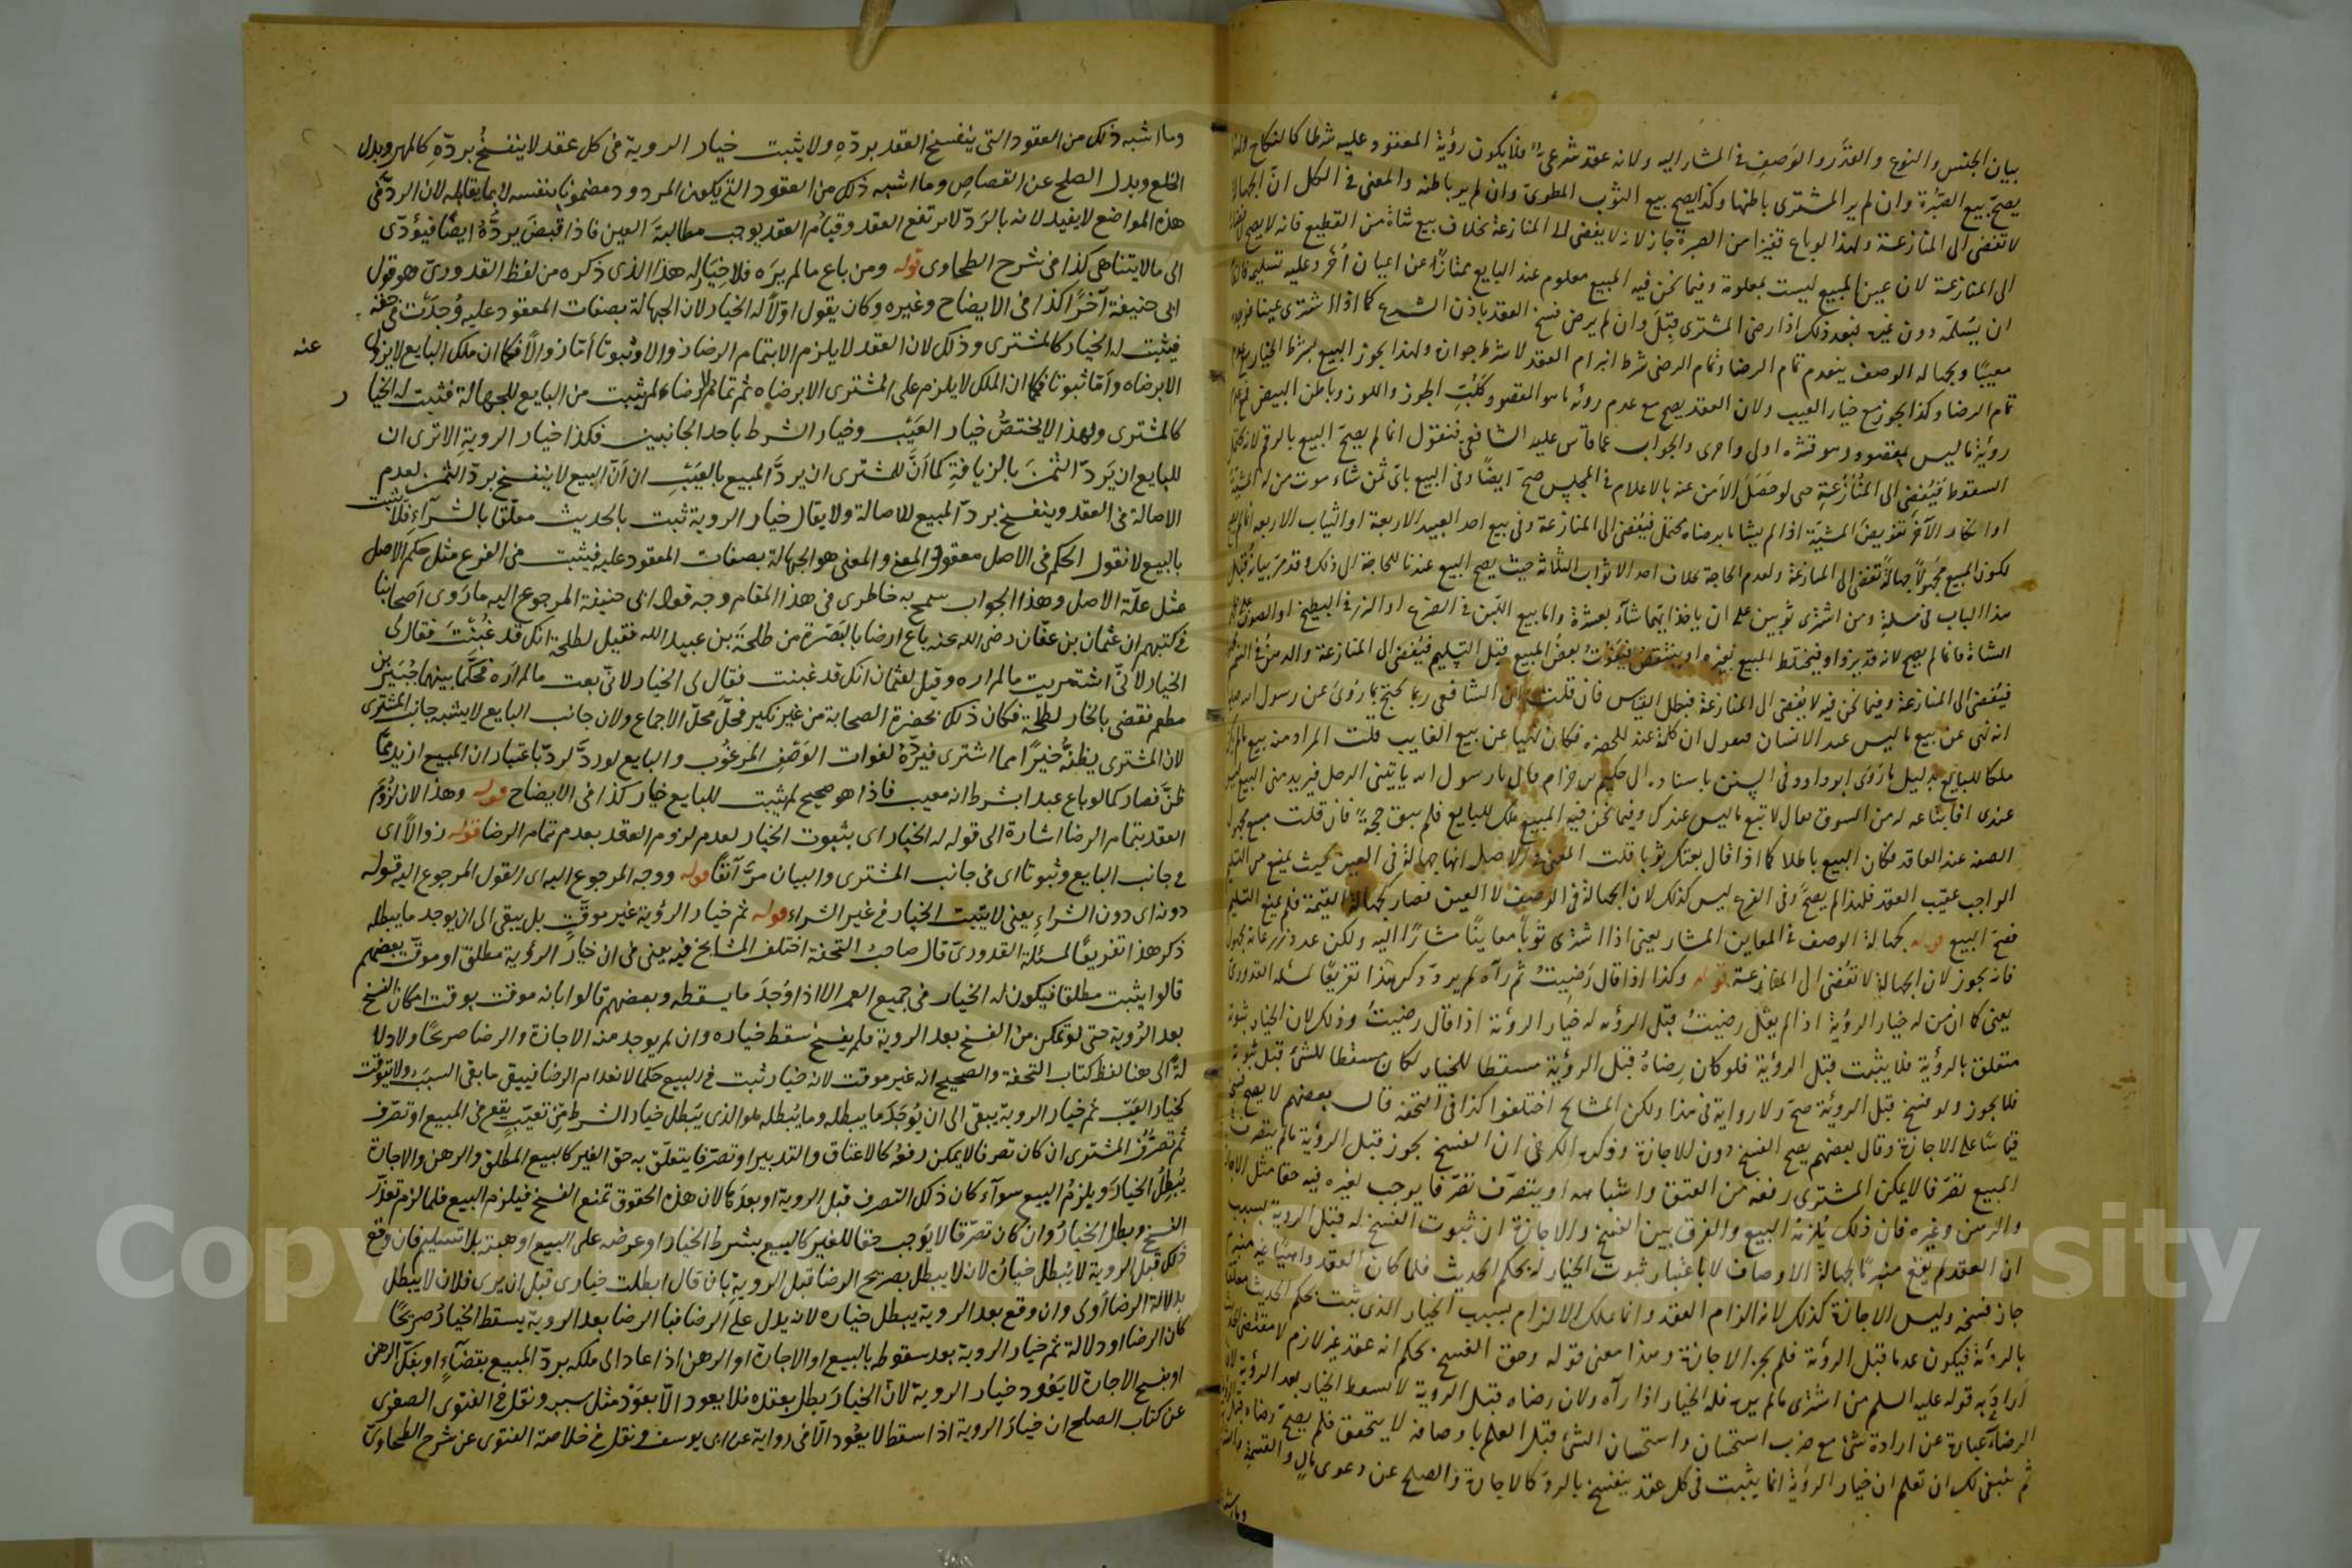 بيان الجنس والنوع والقدر والوصف في المشار اليه ولانه عقد شرعي فلا يكون رؤية المعقود عليه شرطا كالنكاح
يصح بيع الصبرة وان لم ير المشترى باطنها وكذا يصح بيع الثوب المطوى وان لم ير باطنه والمعنى في الكل ان الجهالة
لا تفضى الى المنازعة ولهذا لو باع قفيزا من الصبرة جاز لانه لا يفضى الى المنازعة بخلاف بيع شاة من القطيع فانه لا يصح
الى المنازعة لان عين المبيع ليست بمعلومة وفيما نحن فيه المبيع معلوم عند البايع ممتازا عن اعيان أخر وعليه تسليمه
ان يسلمه دون غيره فبعد ذلك اذا رضى المشترى قبل وان لم يرض فسخ العقد باذن الشرع كما اذا اشترى عينا فوجده
معيبا وبجهالة الوصف ينعدم تمام الرضا وتمام الرضى شرط انبرام العقد لا شرط جوازه ولهذا يجوز البيع بشرط الخيار
تمام الرضا وكذا يجوز مع خيار العيب ولان العقد يصح مع عدم رؤية ما هو المقصود كلب الجوز واللوز وباطن البيض
رؤية ما ليس بمقصود وهو قشره اولى واحرى والجواب عما قاس عليه الشافعي فنقول انما لم يصح البيع بالرقم
السقوط فيفضى الى المنازعة حتى لو حصل الامن عنه بالاعلام في المجلس صح ايضا وفي البيع باى ثمن شاء
لكون المبيع مجهولا جهالة تفضى الى المنازعة ولعدم الحاجة بخلاف احد الاثواب الثلثة حيث يصح البيع عندنا للحاجة الى ذلك وقد مر بيانه قبل
هذا الباب في مسئلة ومن اشترى ثوبين على ان ياخذ ايهما شاء بعشرة واما بيع اللبن في الضرع او البزر في البطيخ او الصوف على
الشاة فانما لم يصح لانه قد يزداد فيختلط المبيع بغيره او ينتقض فيفوت بعض المبيع قبل التسليم فيفضى الى المنازعة
فيفضى الى المنازعة وفيما نحن فيه لا يفضى الى المنازعة فبطل القياس فان قلت ان الشافعي ربما يحتج بما روى عن رسول الله
انه نهى عن بيع ما ليس عند الانسان
ملكا للبايع بدليل ما روى ابو داود في السنن باسناده الى حكيم بن حزام قال يا رسول الله ياتيني الرجل فيريد منى البيع ليس
عندى افابتاعه له من السوق فقال لا تبع ما ليس عندك وفيما نحن فيه المبيع ملك للبايع فلم يبق حجة فان قلت
الصفة عند العاقد فكان البيع باطلا كما اذا قال بعتك ثوبا قلت المعنى في الاصل انها جهالة في العين بحيث يمنع من التسليم
الواجب عقيب العقد فلهذا لم يصح وفي الفرع ليس كذلك لان الجهالة في الوصف لا العين فصار كجهالة القيمة فلم يمنع التسليم
فصح البيع قوله كجهالة الوصف في المعاين المشار يعنى اذا اشترى ثوبا معاينا مشارا اليه ولكن عدد
فانه يجوز لان الجهالة لا تفضى الى المنازعة قوله وكذا اذا قال رضيت ثم رآه له يرده ذكر هذا تفريعا لمسئلة القدورى
يعنى كما ان من له خيار الرؤية اذا لم يقل رضيت قبل الرؤية له خيار الرؤية اذا قال رضيت وذلك لان الخيار
متعلق بالرؤية فلا يثبت قبل الرؤية فلو كان رضاه قبل الرؤية مسقطا للخيار لكان مسقطا للشئ قبل ثبوته
فلا يجوز ولو فسخ قبل الرؤية صح ولا رواية في هذا ولكن المشايخ اختلفوا كذا في التحفة قال بعضهم لا يصح
قياسا على الاجازة وقال بعضهم يصح الفسخ دون الاجازة وذكر الكرخى ان الفسخ يجوز قبل الرؤية ما لم يتصرف
المبيع تصرفا لا يمكن المشترى رفعه من العتق واشباهه او يتصرف تصرفا يوجب لغيره فيه حقا مثل الاجارة
والرهن وغيره فان ذلك يلزمه البيع والفرق بين الفسخ والاجازة ان ثبوت الفسخ له قبل الرؤية بسبب
ان العقد لم يقع منبرما لجهالة الاوصاف لا باعتبار ثبوت الخيار له بحكم الحديث فلما كان العقد واهيا
جاز فسخه وليس الاجازة كذلك لانه الزام العقد وانما ملك الالزام بسبب الخيار الذى ثبت بحكم الحديث
بالرؤية فيكون عدما قبل الرؤية فلم يجز الاجازة وهذا معنى قوله وحق الفسخ بحكم انه عقد غير لازم لا بمقتضى
اراد به قوله عليه السلم من اشترى ما لم يره فله الخيار اذا رآه ولان رضاه قبل الرؤية لا يسقط الخيار بعد الرؤية لان
الرضا عبارة عن ارادة شئ مع ضرب استحسان واستحسان الشئ قبل العلم باوصافه لا يتحقق فلم يصح رضاه قبل
ثم ينبغى لك ان تعلم ان خيار الرؤية انما يثبت في كل عقد ينفسخ بالرد كالاجارة والصلح عن دعوى مال والقسمة
وما اشبه ذلك من العقود التى ينفسخ العقد برده ولا يثبت خيار الروية في كل عقد لا ينفسخ برده كالمهر وبدل
الخلع وبدل الصلح عن القصاص وما اشبه ذلك من العقود التى يكون المردود مضمونا بنفسه لا بما يقابله لان الرد في
هذه المواضع لا يفيد لانه بالرد لا يرتفع العقد وقيام العقد يوجب مطالبة العين فاذا قبض يرده ايضا فيؤدى
الى ما لا يتناهى كذا في شرح الطحاوى قوله ومن باع مالم يره فلا خيار له هذا الذى ذكره من لفظ القدورى وهو قول
ابى حنيفة آخرا كذا في الايضاح وغيره وكان يقول اولا له الخيار لان الجهالة بصفات المعقود عليه وجدت في حقه
فيثبت له الخيار كالمشترى وذلك لان العقد لا يلزم الا بتمام الرضا زوالا وثبوتا أما زوالا فكما ان ملك البايع لا يزول عنه
الا برضاه وأما ثبوتا فكما ان الملك لا يلزم على المشترى الا برضاه ثم تمام الرضاء لم يثبت من البايع للجهالة فثبت له الخيار
كالمشترى ولهذا لا يختص خيار العيب وخيار الشرط باحد الجانبين فكذا خيار الروية الا ترى ان
للبايع ان يرد الثمن بالزيافة كما ان للمشترى ان يرد المبيع بالعيب الا ان البيع لا ينفسخ برد الثمن لعدم
الاصالة في العقد وينفسخ برد المبيع للاصالة ولا يقال خيار الروية ثبت بالحديث معلقا بالشرآء فلا يثبت
بالبيع لانا نقول الحكم في الاصل معقول المعنى والمعنى هو الجهالة بصفات المعقود عليه فيثبت في الفرع مثل حكم الاصل
بمثل علة الاصل وهذا الجواب سمح به خاطرى في هذا المقام وجه قول ابى حنيفة المرجوع اليه ما روى اصحابنا
في كتبهم ان عثمان بن عفان رضى الله عنه باع ارضا بالبصرة من طلحة بن عبيد الله فقيل لطلحة انك قد غبنت فقال لى
الخيار لانى اشتريت مالم اره وقيل لعثمان انك قد غبنت فقال لى الخيار لانى بعت مالم اره فحكما بينهما جبير بن
مطعم فقضى بالخيار لطلحة فكان ذلك بحضرة الصحابة من غير نكير فحل محل الاجماع ولان جانب البايع لا يشبه جانب المشترى
لان المشترى يظنه خيرا مما اشترى فيرده لفوات الوصف المرغوب والبايع لو رد لرد باعتبار ان المبيع ازيد مما
ظن فصار كما لو باع عبدا بشرط انه معيب فاذا هو صحيح لم يثبت للبايع خيار كذا في الايضاح قوله وهذا لان لزوم
العقد بتمام الرضا اشارة الى قوله له الخيار اى بثبوت الخيار لعدم لزوم العقد بعدم تمام الرضا قوله زوالا اى
في جانب البايع وثبوتا اى في جانب المشترى والبيان مر آنفا قوله ووجه المرجوع اليه اى القول المرجوع اليه قوله
دونه اى دون الشراء يعنى لا يثبت الخيار في غير الشراء قوله ثم خيار الرؤية غير موقت بل يبقى الى ان يوجد ما يبطله
ذكر هذا تفريعا لمسئلة القدورى قال صاحب التحفة اختلف المشايخ فيه يعنى في ان خيار الرؤية مطلق او موقت بعضهم
قالوا يثبت مطلقا فيكون له الخيار في جميع العمر الا اذا وجد ما يسقطه وبعضهم قالوا بانه موقت بوقت امكان الفسخ
بعد الرؤية حتى لو تمكن من الفسخ بعد الروية فلم يفسخ سقط خياره وان لم يوجد منه الاجازة والرضا صريحا ولا دلا
لة الى هنا لفظ كتاب التحفة والصحيح انه غير موقت لانه خيار ثبت في البيع حكما لانعدام الرضا فيبقى ما بقى السبب ولا يتوقت
كخيار العيب ثم خيار الروية يبقى الى ان يوجد ما يبطله وما يبطله هو الذى يبطل خيار الشرط من تعيب يقع في المبيع او تصرف
ثم تصرف المشترى ان كان تصرفا لا يمكن رفعه كالاعتاق والتدبير او تصرفا يتعلق به حق الغير كالبيع المطلق والرهن والاجارة
يبطل الخيار ويلزم البيع سوآء كان ذلك التصرف قبل الروية او بعدها لان هذه الحقوق تمنع الفسخ فيلزم البيع فلما لزم تعذر
الفسخ وبطل الخيار وان كان تصرفا لا يوجب حقا للغير كالبيع بشرط الخيار او عرضه على البيع او هبته بلا تسليم فان وقع
ذلك قبل الروية لا يبطل خياره لانه لا يبطل بصريح الرضا قبل الروية بان قال ابطلت خيارى قبل ان يرى فلان لا يبطل
بدلالة الرضا أولى وان وقع بعد الروية يبطل خياره لانه يدل على الرضا فبالرضا بعد الروية يسقط الخيار صريحا
كان الرضا او دلالة ثم خيار الروية بعد سقوطه بالبيع او الاجارة او الرهن اذا عاد الى ملكه برد المبيع بقضآء او بفك الرهن
او بفسخ الاجارة لا يعود خيار الروية لان الخيار بطل بعقده فلا يعود الا بعود مثل سببه ونقل في الفتوى الصغرى
عن كتاب الصلح ان خيار الروية اذا سقط لا يعود الا في رواية عن ابى يوسف ونقل في خلاصة الفتوى عن شرح الطحاوى
Copyright © King Saud University